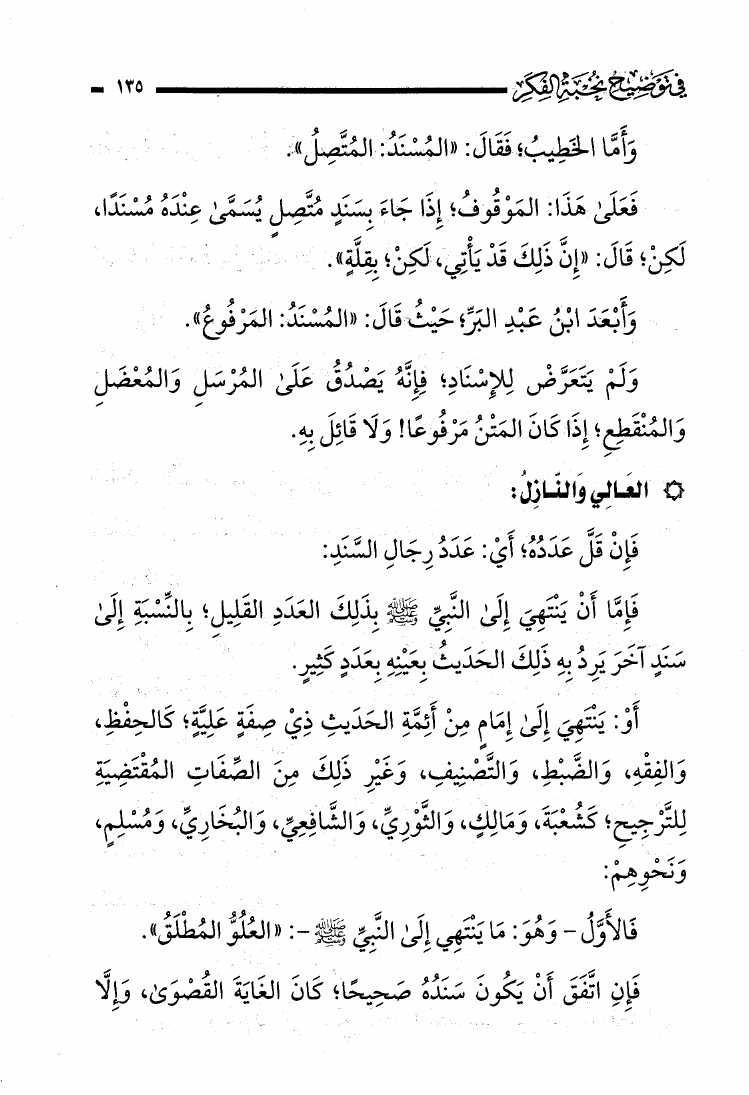 في تَوْضِيحِ نُخْبَةِ الفِكَرِ ١٣٥
وَأَمَّا الخَطِيبُ؛ فَقَالَ: «المُسْنَدُ: المُتَّصِلُ».
فَعَلَىٰ هَذَا: المَوْقُوفُ؛ إِذَا جَاءَ بِسَنَدٍ مُتَّصِلٍ يُسَمَّىٰ عِنْدَهُ مُسْنَدًا،
لَكِنْ؛ قَالَ: «إِنَّ ذَلِكَ قَدْ يَأْتِي، لَكِنْ؛ بِقِلَّةٍ».
وَأَبْعَدَ ابْنُ عَبْدِ البَرِّ؛ حَيْثُ قَالَ: «المُسْنَدُ: المَرْفُوعُ».
وَلَمْ يَتَعَرَّضْ لِلإِسْنَادِ؛ فِإِنَّهُ يَصْدُقُ عَلَىٰ المُرْسَلِ وَالمُعْضَلِ
وَالمُنْقَطِعِ؛ إِذَا كَانَ المَتْنُ مَرْفُوعًا! وَلَا قَائِلَ بِهِ.
۞ العَالِي وَالنَّازِلُ:
فَإِنْ قَلَّ عَدَدُهُ؛ أَيْ: عَدَدُ رِجَالِ السَّنَدِ:
فَإِمَّا أَنْ يَنْتَهِيَ إِلَىٰ النَّبِيِّ ﷺ بِذَلِكَ العَدَدِ القَلِيلِ؛ بِالنِّسْبَةِ إِلَىٰ
سَنَدٍ آخَرَ يَرِدُ بِهِ ذَلِكَ الحَدِيثُ بِعَيْنِهِ بِعَدَدٍ كَثِيرٍ.
أَوْ: يَنْتَهِيَ إِلَىٰ إِمَامٍ مِنْ أَئِمَّةِ الحَدِيثِ ذِيْ صِفَةٍ عَلِيَّةٍ؛ كَالحِفْظِ،
وَالفِقْهِ، وَالضَّبْطِ، وَالتَّصْنِيفِ، وَغَيْرِ ذَلِكَ مِنَ الصِّفَاتِ المُقْتَضِيَةِ
لِلتَّرْجِيحِ؛ كَشُعْبَةَ، وَمَالِكٍ، وَالثَّوْرِيِّ، وَالشَّافِعِيِّ، وَالبُخَارِيِّ، وَمُسْلِمٍ،
وَنَحْوِهِمْ:
فَالأَوَّلُ - وَهُوَ: مَا يَنْتَهِي إِلَىٰ النَّبِيِّ ﷺ -: «العُلُوُّ المُطْلَقُ».
فَإِنِ اتَّفَقَ أَنْ يَكُونَ سَنَدُهُ صَحِيحًا؛ كَانَ الغَايَةَ القُصْوَىٰ، وَإِلَّا